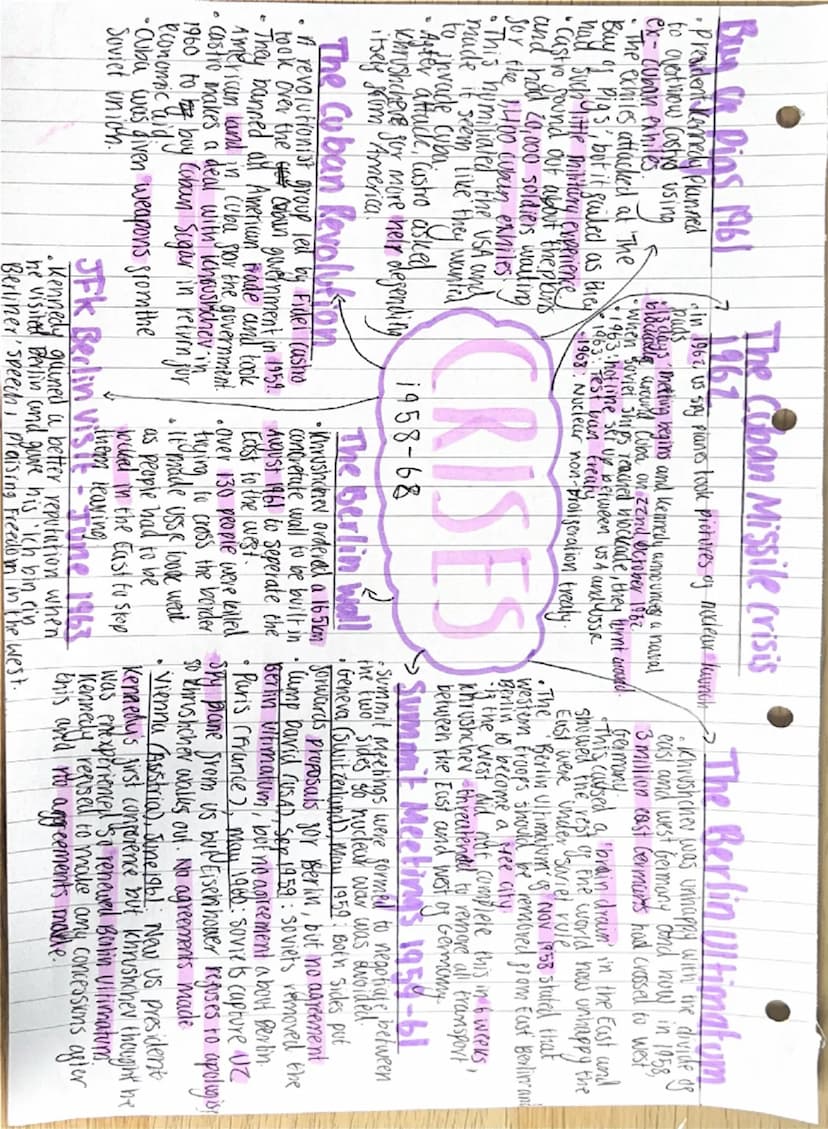 CRISES
1958-68
Bay of Pigs 1961
• President Kennedy planned
to overthrow Castro using
ex-Cuban exhiles
• The exhiles attacked at 'The
Bay of Pigs', but it failed as they
had such little military experience.
• Castro found out about the plans
and had 20,000 soldiers waiting
for the 1,400 Cuban exhiles.
• This humiliated the USA and
made it seem like they wanted
to invade Cuba.
• After attack, Castro asked
Khruschev for more help defending
itself from America.
The Cuban Missile Crisis
1962
• In 1962 US spy planes took pictures of nuclear launch
pads
• 13 days meeting begins and Kennedy announces a naval
blockade around Cuba on 22nd October 1962
• When Soviet ships reached blockade, they turnt around.
• 1963: hotline set up between USA and USSR
• 1963: Test ban treaty
• 1968: Nuclear non-proliferation treaty.
The Berlin Ultimatum
• Khruschev was unhappy with the divide of
east and west Germany and how in 1958,
3 million east Germans had crossed to west
Germany
• This caused a 'brain drain' in the East and
showed the rest of the world how unhappy the
East were under Soviet rule
• The 'Berlin Ultimatum' of Nov 1958 stated that
western troops should be removed from East Berlin and
Berlin to become a free city
• If the West did not complete this in 6 weeks,
Khruschev threatended to remove all transport
between the East and West of Germany.
The Cuban Revolution
• A revolutionist group led by Fidel Castro
took over the Cuban government in 1959.
• They banned all American trade and took
American land in Cuba for the government.
• Castro makes a deal with Khruschev in
1960 to buy Cuban Sugar in return for
economic aid
• Cuba was given weapons from the
Soviet union.
The Berlin Wall
• Khruschev ordered a 165km
concrete wall to be built in
August 1961 to seperate the
East to the west.
• over 130 people were killed
trying to cross the border
• it made USSR look weak
as people had to be
locked in the East to stop
them leaving
Summit Meetings 1959-61
• Summit meetings were formed to negotiate between
the two sides so nuclear war was avoided.
• Geneva (Switzerland), May 1959: Both sides put
forwards proposals for Berlin, but no agreement
• Camp David (USA), Sep 1959: soviets removed the
Berlin Ultimatum, but no agreement about Berlin.
• Paris (France), May 1960: Soviets capture U2
Spy Plane from US but Eisenhower refuses to apologise
so Khruschev walks out. No agreements made
• Vienna (Austria), June 1961: New US president
Kennedy's first conference but Khruschev thought he
was inexperienced so renewed Berlin Ultimatum
Kennedy refused to make any concessions after
this and no agreements made.
JFK Berlin Visit - June 1963
• Kennedy gained a better reputation when
he visited Berlin and gave his 'Ich bin ein
Berliner' speech, praising freedom in the west.